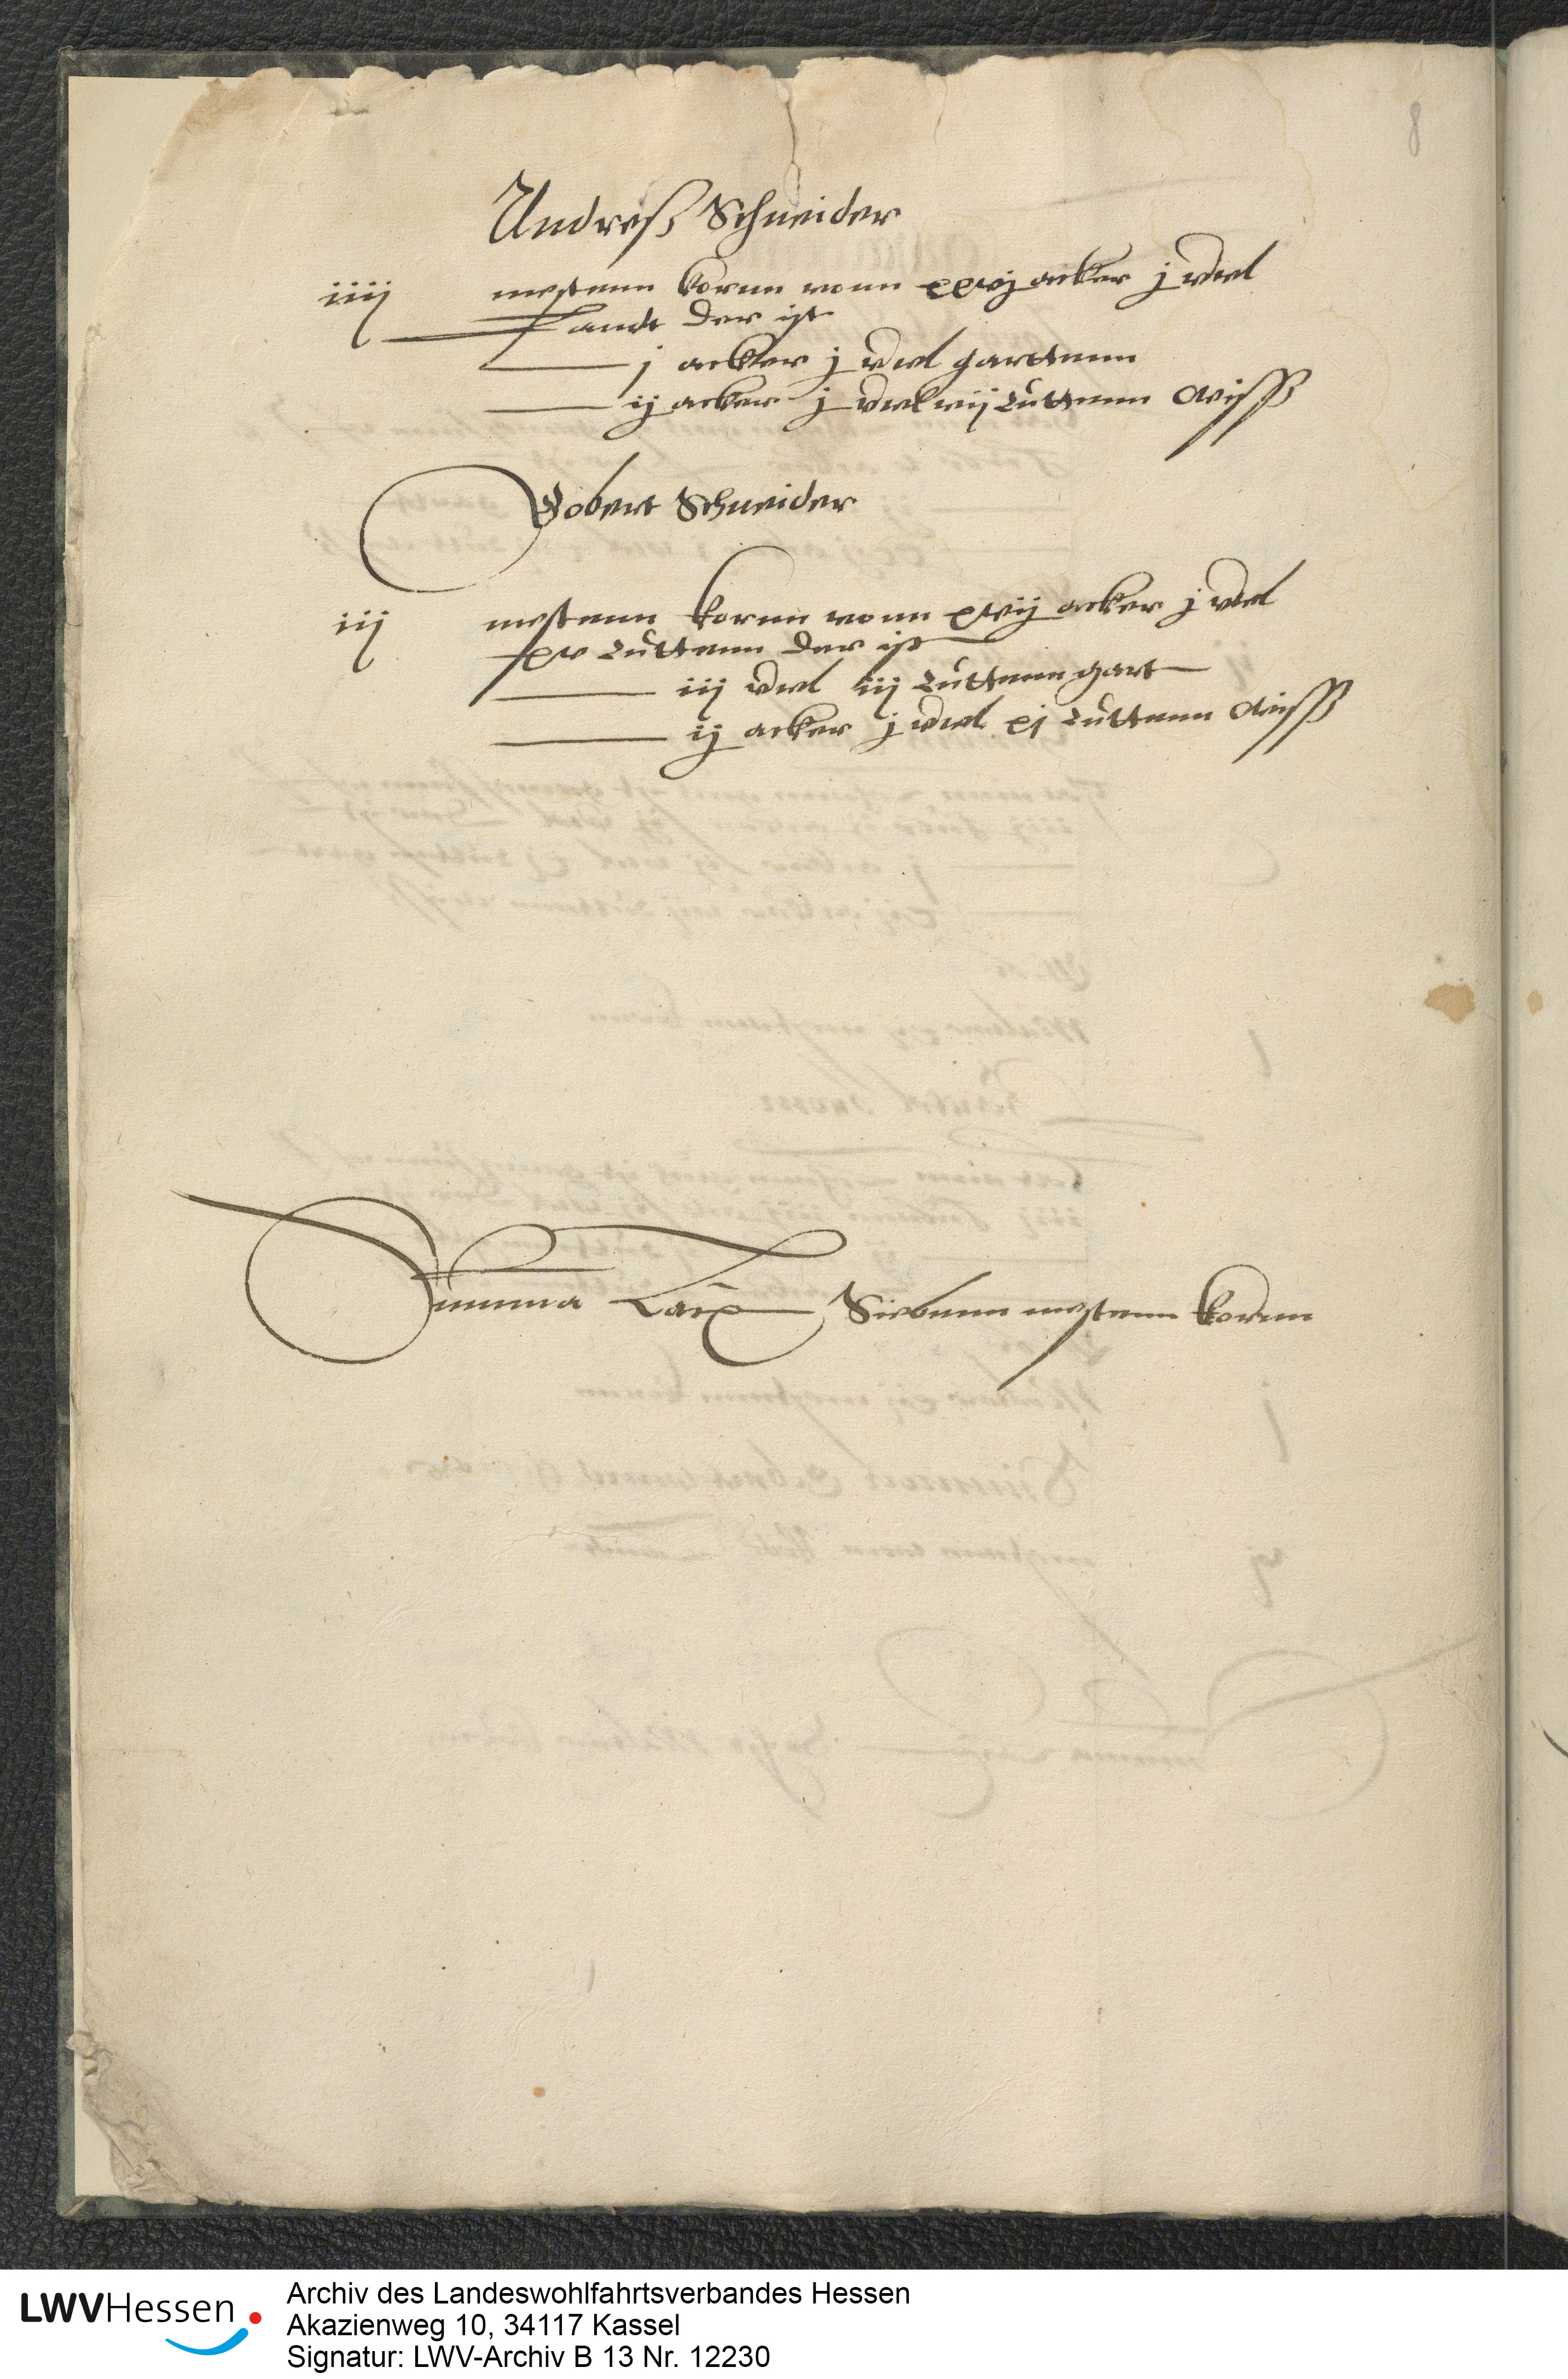 8
Andreß Schneider
iiij mestenn kornn vonn xxvj acker j virtel
Landt der ist
j acker j virtel garttenn
ij acker j virtel vij Ruttenn Wiss
Gobert Schneider
iij mestenn kornn vonn xvij acker j virtel
xv Ruttenn der ist
iij virtel iij Ruttenn gart
ij acker j virtel xj Ruttenn Wiss
Summa Laix Siebenn mestenn kornn
LWVHessen
Archiv des Landeswohlfahrtsverbandes Hessen
Akazienweg 10, 34117 Kassel
Signatur: LWV-Archiv B 13 Nr. 12230